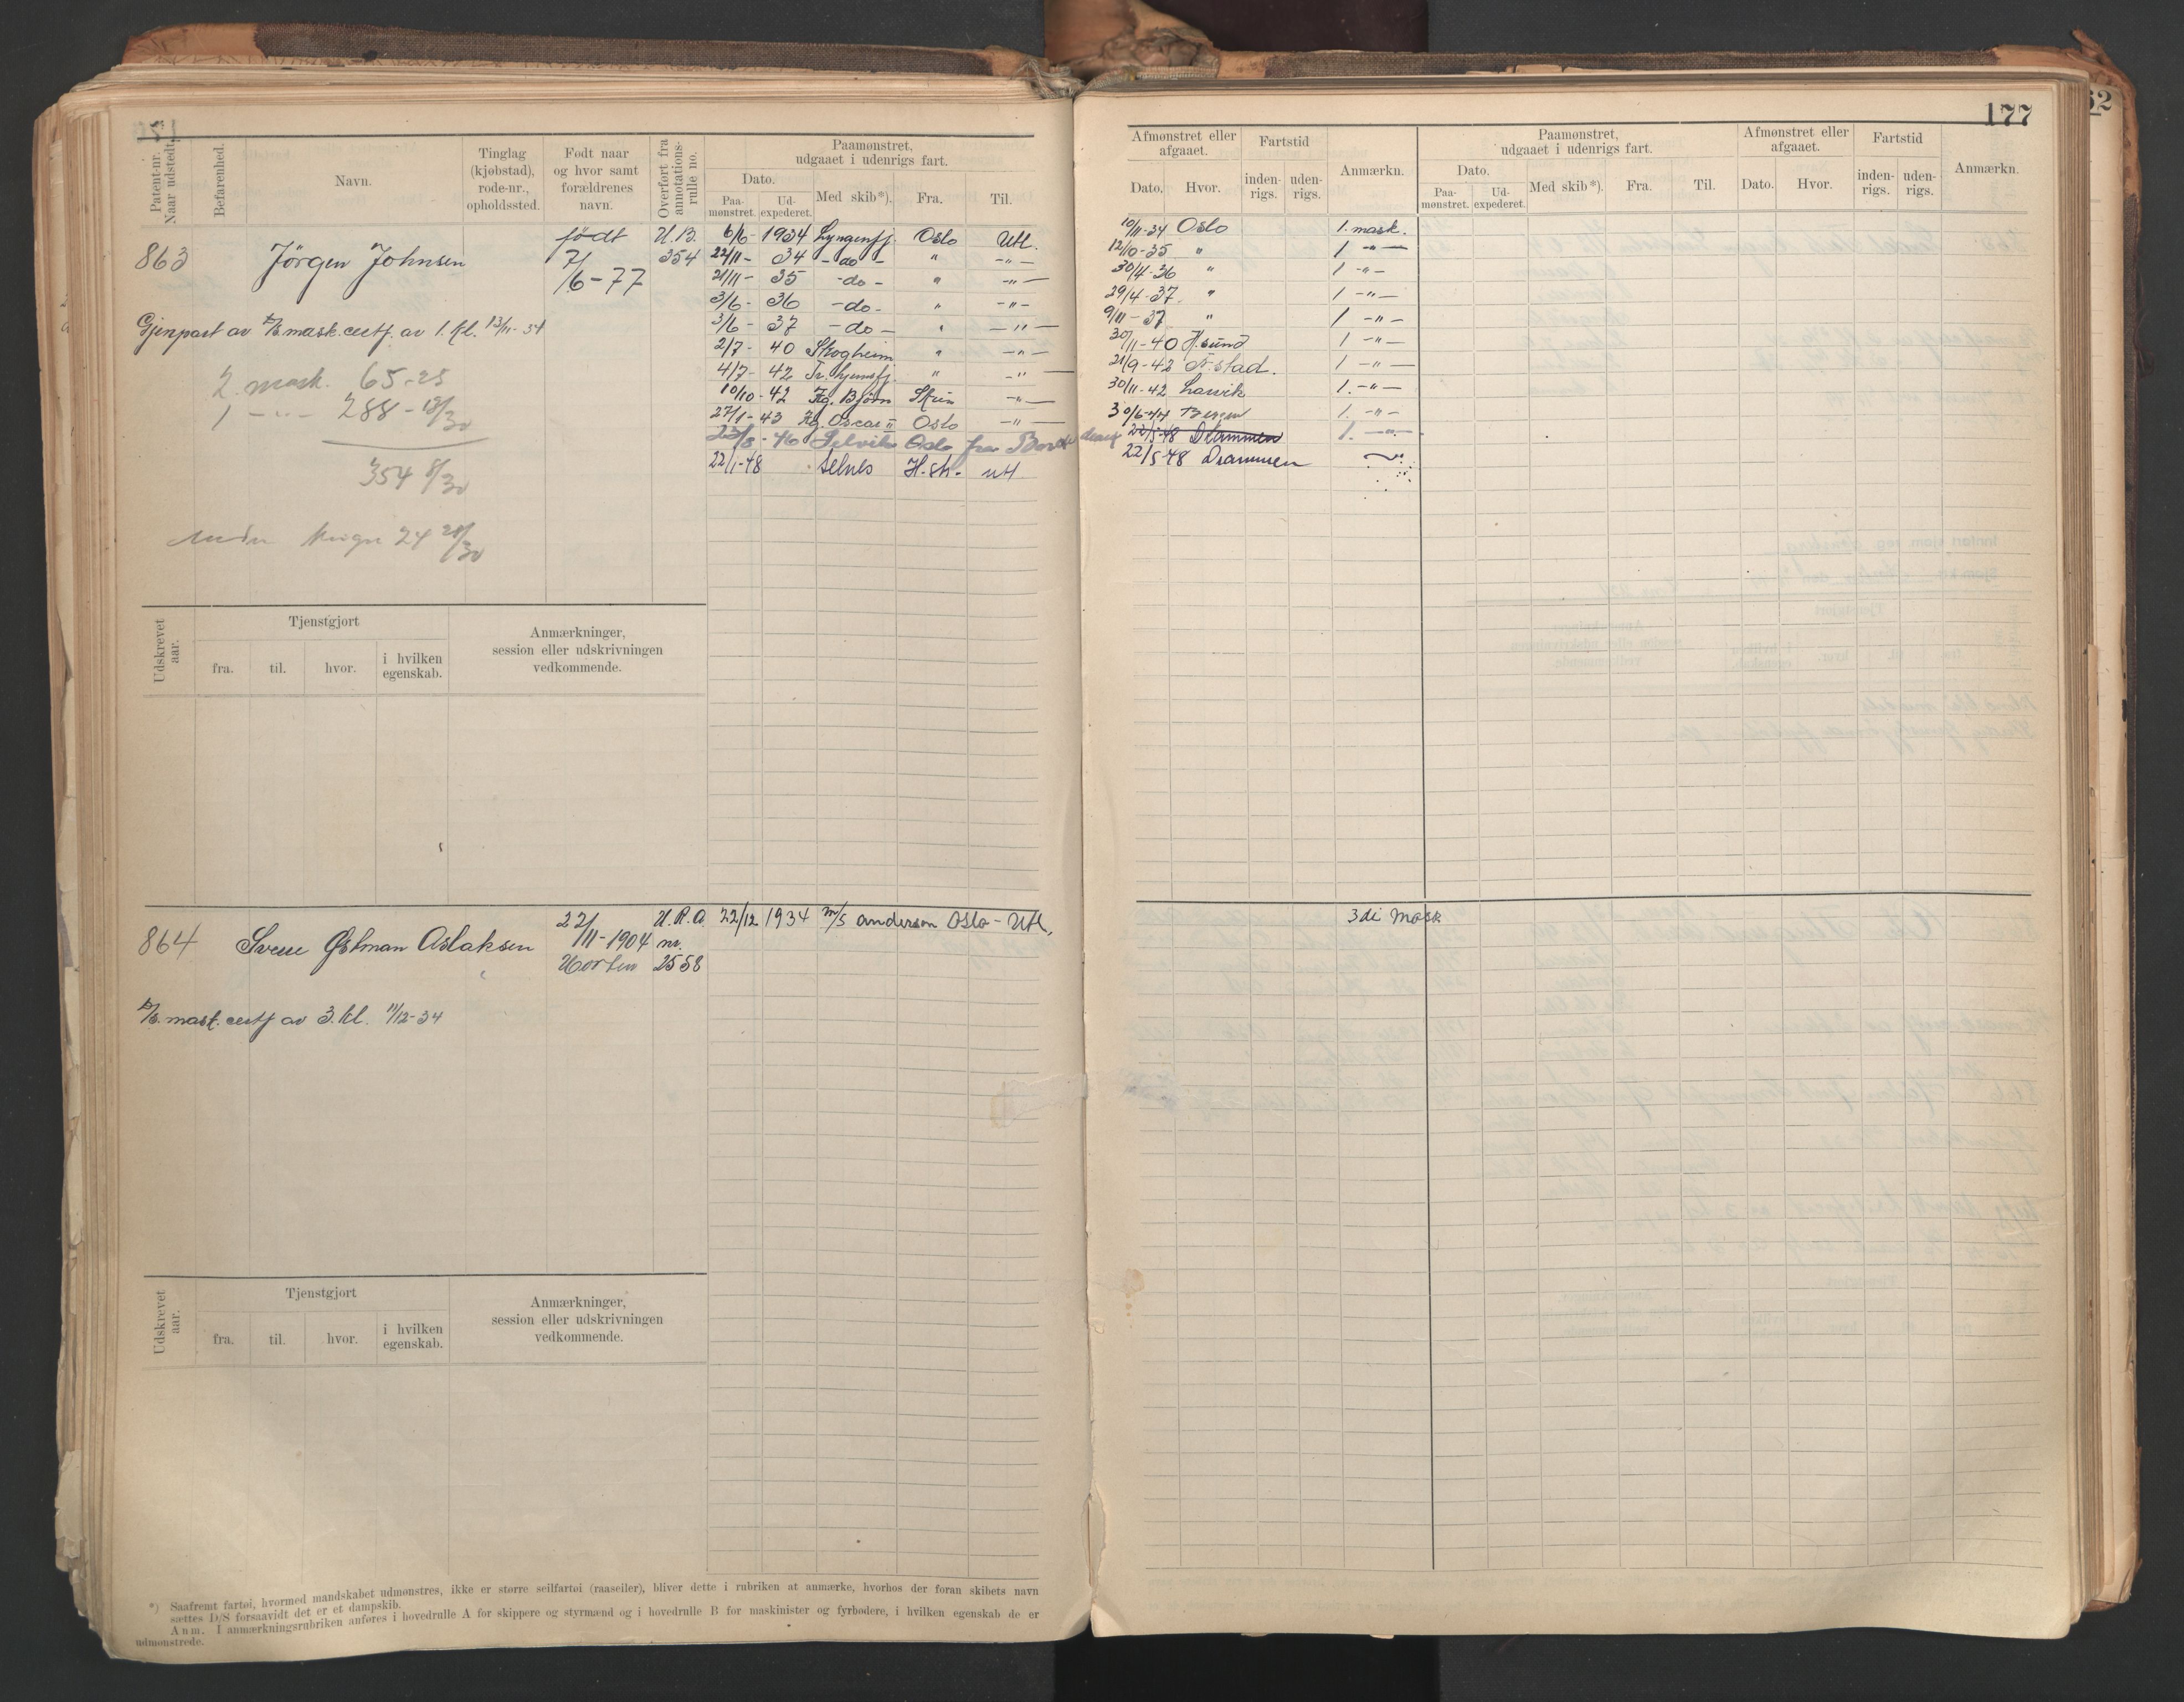 177
52
Patent-nr. Naar udstedt.
Befarenhed.
Navn.
Tinglag (kjøbstad), rode-nr., opholdssted.
Født naar og hvor samt forældrenes navn.
Overført fra annotations-rulle no.
Paamønstret, udgaaet i udenrigs fart.
Dato.
Paa-mønstret.
Ud-expederet.
Med skib*).
Fra.
Til.
Afmønstret eller afgaaet.
Dato.
Hvor.
Fartstid
inden-rigs.
uden-rigs.
Anmærkn.
Paamønstret, udgaaet i udenrigs fart.
Dato.
Paa-mønstret.
Ud-expederet.
Med skib*).
Fra.
Til.
Afmønstret eller afgaaet.
Dato.
Hvor.
Fartstid
inden-rigs.
uden-rigs.
Anmærkn.
863 Jörgen Johnsen
født 7/6-77
U.B. 354
6/6- 1934 Lyngenfj. Oslo Utl. 10/11-34 Oslo 1. mask.
22/11- 34 -do- " -"- 12/10-35 " 1 -"-
21/11- 35 -do- " -"- 30/4-36 " 1 -"-
3/6- 36 -do- " -"- 29/4-37 " 1 -"-
3/6- 37 -do- " -"- 9/11-37 " 1 -"-
2/7- 40 Skogheim " -"- 30/11-40 H.sund 1 -"-
4/7- 42 " -"- 21/9-42 1 -"-
10/10-42 Kg. Björn Skien -"- 30/11-42 Larvik 1. -"-
27/1-43 Kg. Oscar II Oslo -"- 30/6-44 Bergen 1. -"-
23/8-46 Selvik Oslo fra 22/5-48 Drammen 1. -"-
22/1-48 Selnes H.st- utl 22/5-48 Drammen
Gjenpart av D/S mask. certf. av 1. kl. 13/11-34
2. mask. 65-25
1 -"- 288-13/30
354 8/30
under krigen 24 28/30
Udskrevet aar.
Tjenstgjort
fra.
til.
hvor.
i hvilken egenskab.
Anmærkninger, session eller udskrivningen vedkommende.
864 Sverre Østman Aslaksen
22/11-1904 Horten
U.R.A. nr. 2558
22/12 1934 m/S anderson Oslo - Utl. 3di Mask
D/S. mask. certf av 3. kl. 11/12-34
Udskrevet aar.
Tjenstgjort
fra.
til.
hvor.
i hvilken egenskab.
Anmærkninger, session eller udskrivningen vedkommende.
*) Saafremt fartøi, hvormed mandskabet udmønstres, ikke er større seilfartøi (raaseiler), bliver dette i rubriken at anmærke, hvorhos der foran skibets navn
sættes D/S forsaavidt det er et dampskib.
Anm. I anmærkningsrubriken anføres i hovedrulle A for skippere og styrmænd og i hovedrulle B for maskinister og fyrbødere, i hvilken egenskab de er
udmønstrede.